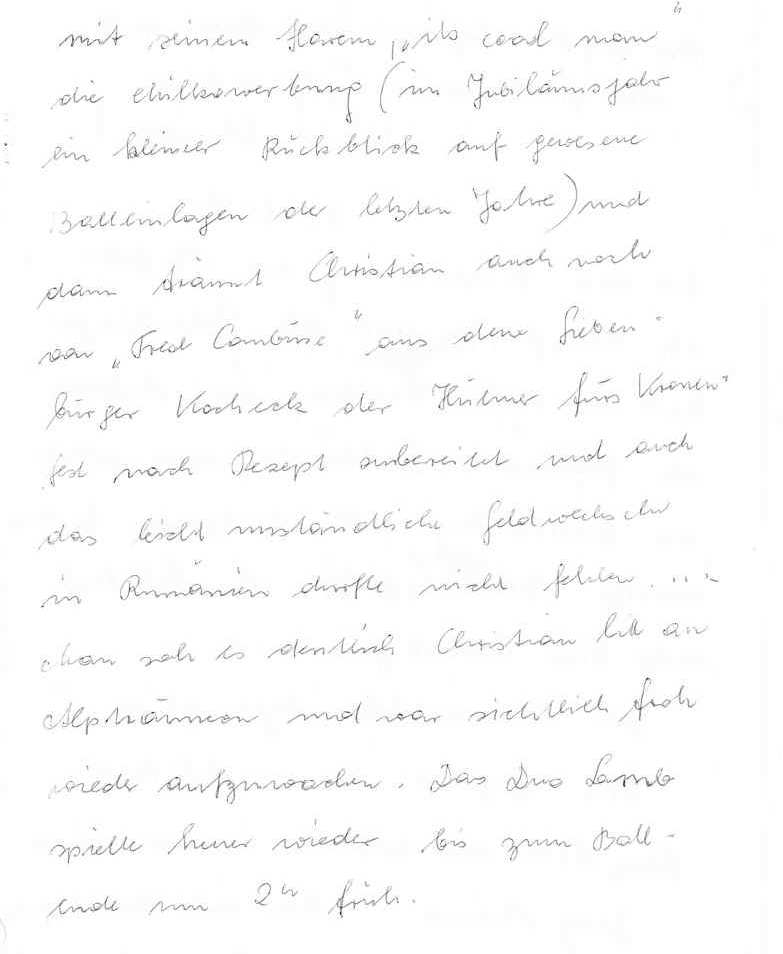 mit seinem Harem, „its cool man"
die Milkawerbung (im Jubiläumsjahr
ein kleiner Rückblick auf gewesene
Balleinlagen der letzten Jahre) und
dann träumt Christian auch noch
von „Fred Combüse" aus dem Sieben-
bürger Kocheck der Hühner fürs Kronen-
fest nach Rezept zubereitet und auch
das leicht umständliche Geldwechseln
in Rumänien durfte nicht fehlen....
Man sah es deutlich Christian litt an
Alpträumen und war sichtlich froh
wieder aufzuwachen. Das Duo
spielte heuer wieder bis zum Ball-
ende um 2h früh.